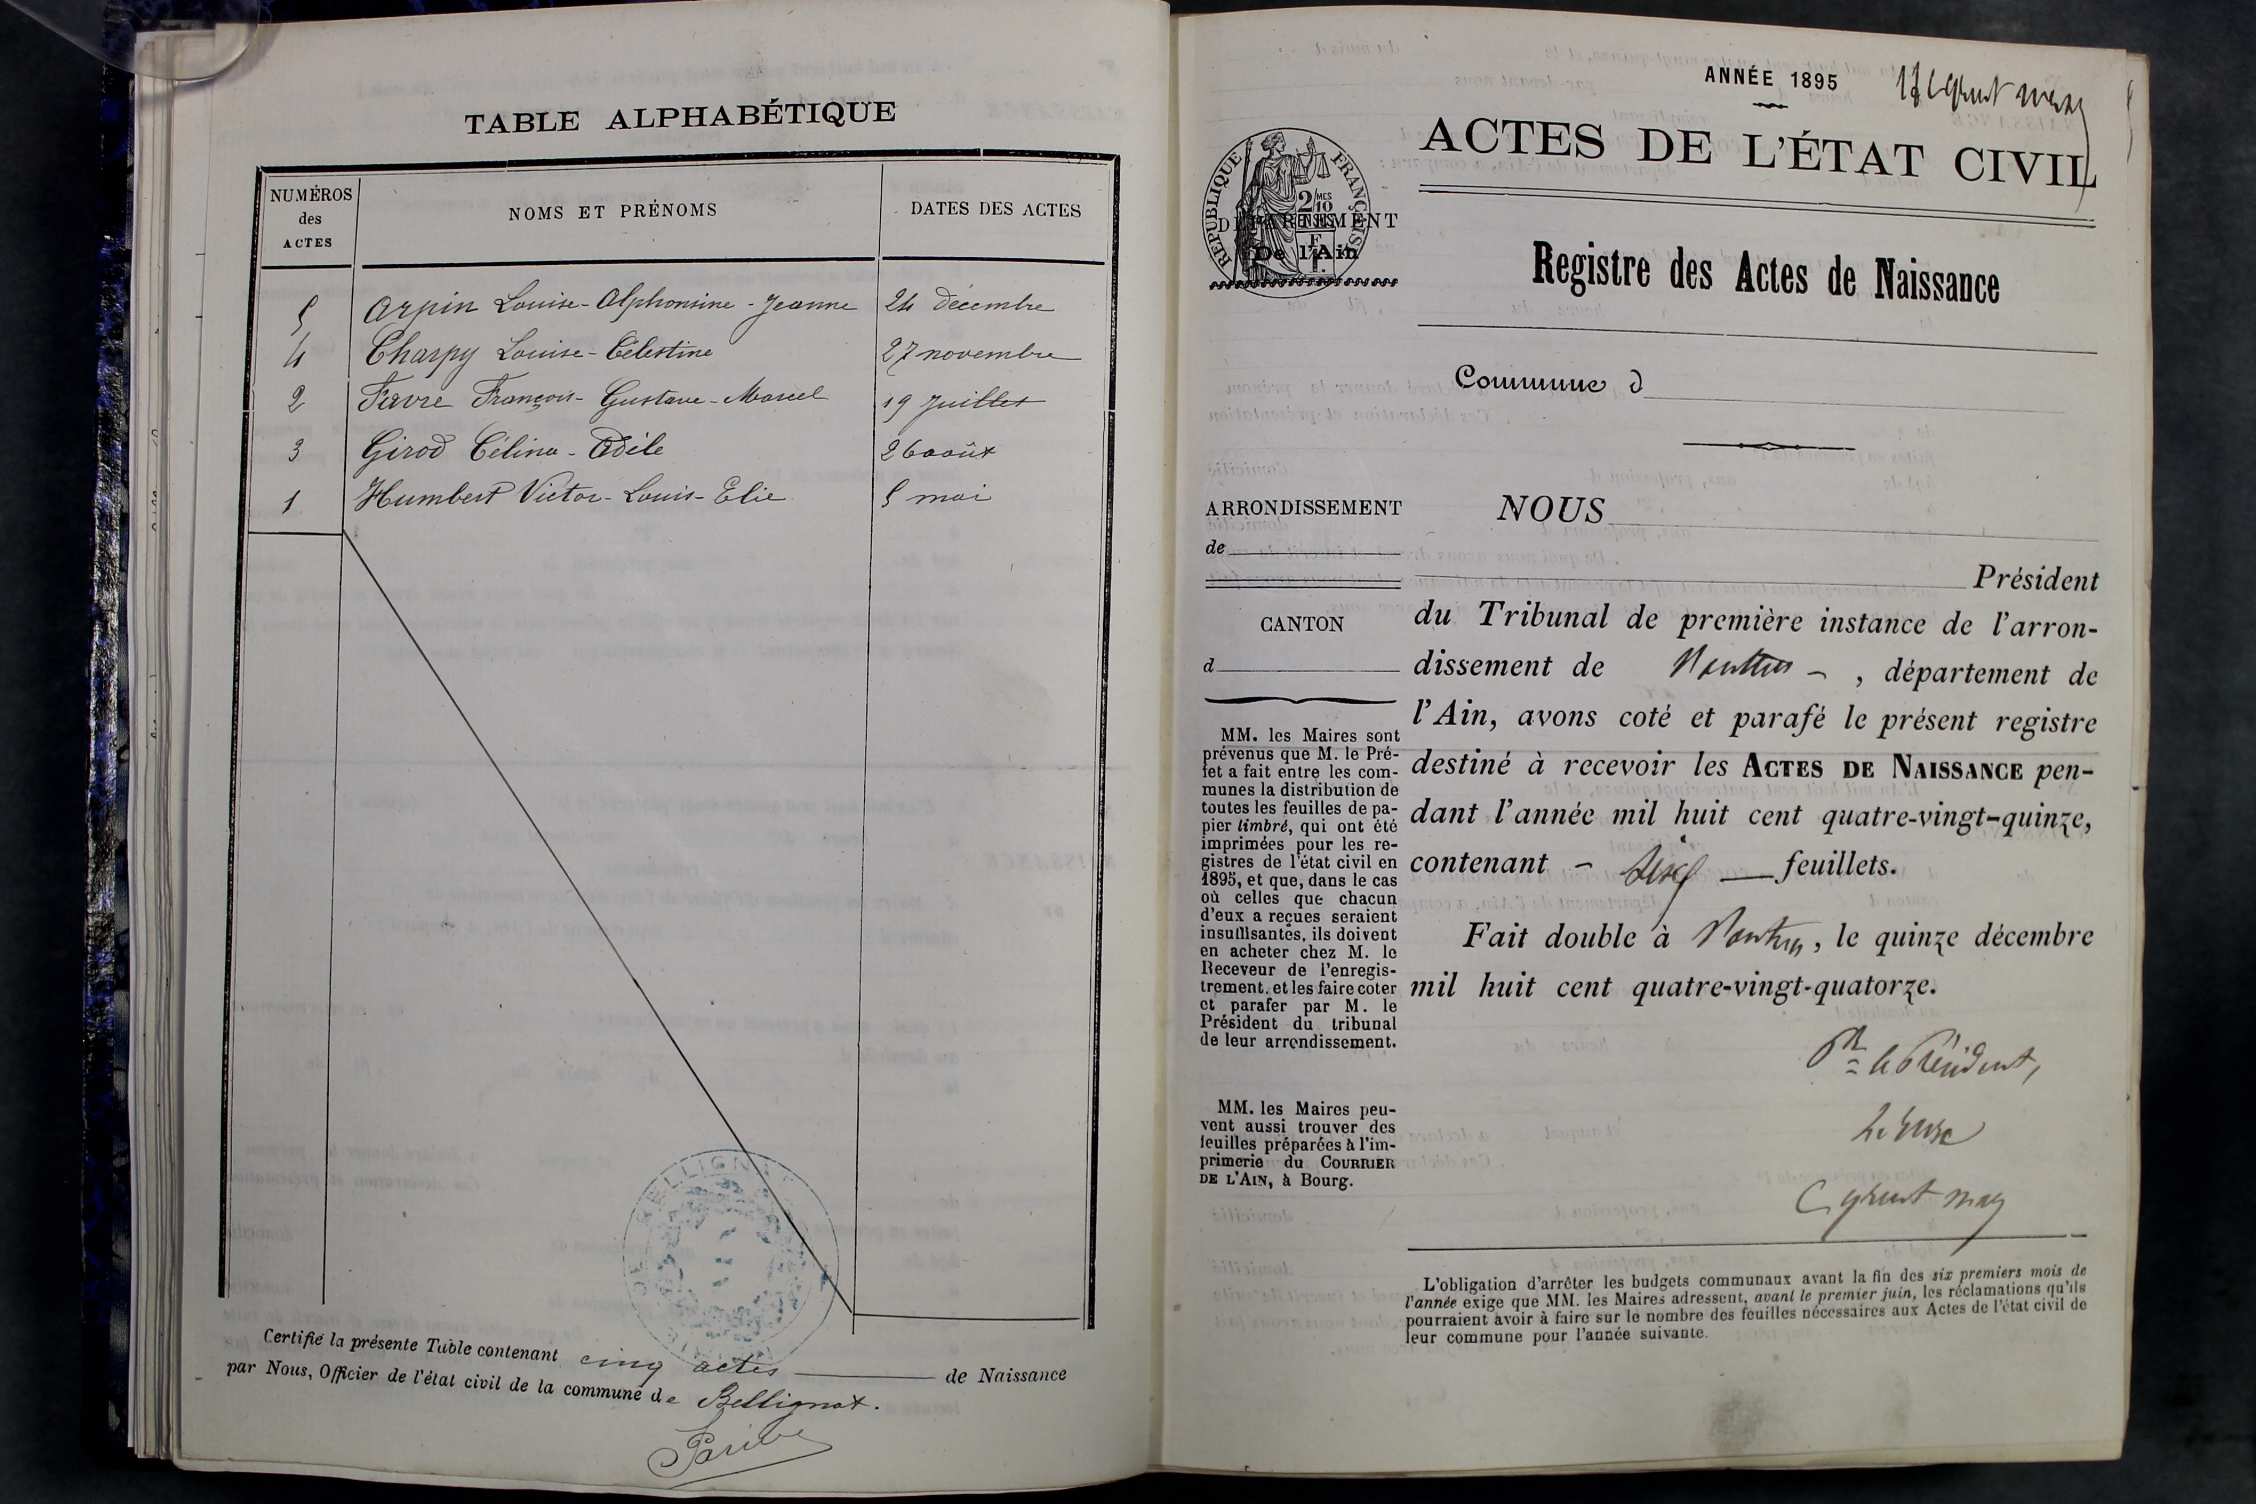 TABLE ALPHABÉTIQUE
NUMÉROS
des
ACTES
NOMS ET PRÉNOMS
DATES DES ACTES
5 Arpin Louise-Alphonsine-Jeanne 24 décembre
4 Charpy Louise-Célestine 27 novembre
2 Favre François-Gustave-Marcel 19 Juillet
3 Girod Célina-Adèle 26 août
1 Humbert Victor-Louis-Elie 5 mai
Certifié la présente Table contenant cinq actes de Naissance
par Nous, Officier de l'état civil de la commune de Bellignat.
ANNÉE 1895
ACTES DE L'ÉTAT CIVIL
RÉPUBLIQUE FRANÇAISE
2/10
MES
DÉPARTEMENT
De l'Ain
Registre des Actes de Naissance
Commune d
ARRONDISSEMENT
de
CANTON
d
MM. les Maires sont
prévenus que M. le Pré-
fet a fait entre les com-
munes la distribution de
toutes les feuilles de pa-
pier timbré, qui ont été
imprimées pour les re-
gistres de l'état civil en
1895, et que, dans le cas
où celles que chacun
d'eux a reçues seraient
insuffisantes, ils doivent
en acheter chez M. le
Receveur de l'enregis-
trement, et les faire coter
et parafer par M. le
Président du tribunal
de leur arrondissement.
MM. les Maires peu-
vent aussi trouver des
feuilles préparées à l'im-
primerie du COURRIER
DE L'AIN, à Bourg.
NOUS
Président
du Tribunal de première instance de l'arron-
dissement de Nantua -, département de
l'Ain, avons coté et parafé le présent registre
destiné à recevoir les ACTES DE NAISSANCE pen-
dant l'année mil huit cent quatre-vingt-quinze,
contenant - six feuillets.
Fait double à Nantua, le quinze décembre
mil huit cent quatre-vingt-quatorze.
Pr le Président,
L'obligation d'arrêter les budgets communaux avant la fin des six premiers mois de
l'année exige que MM. les Maires adressent, avant le premier juin, les réclamations qu'ils
pourraient avoir à faire sur le nombre des feuilles nécessaires aux Actes de l'état civil de
leur commune pour l'année suivante.